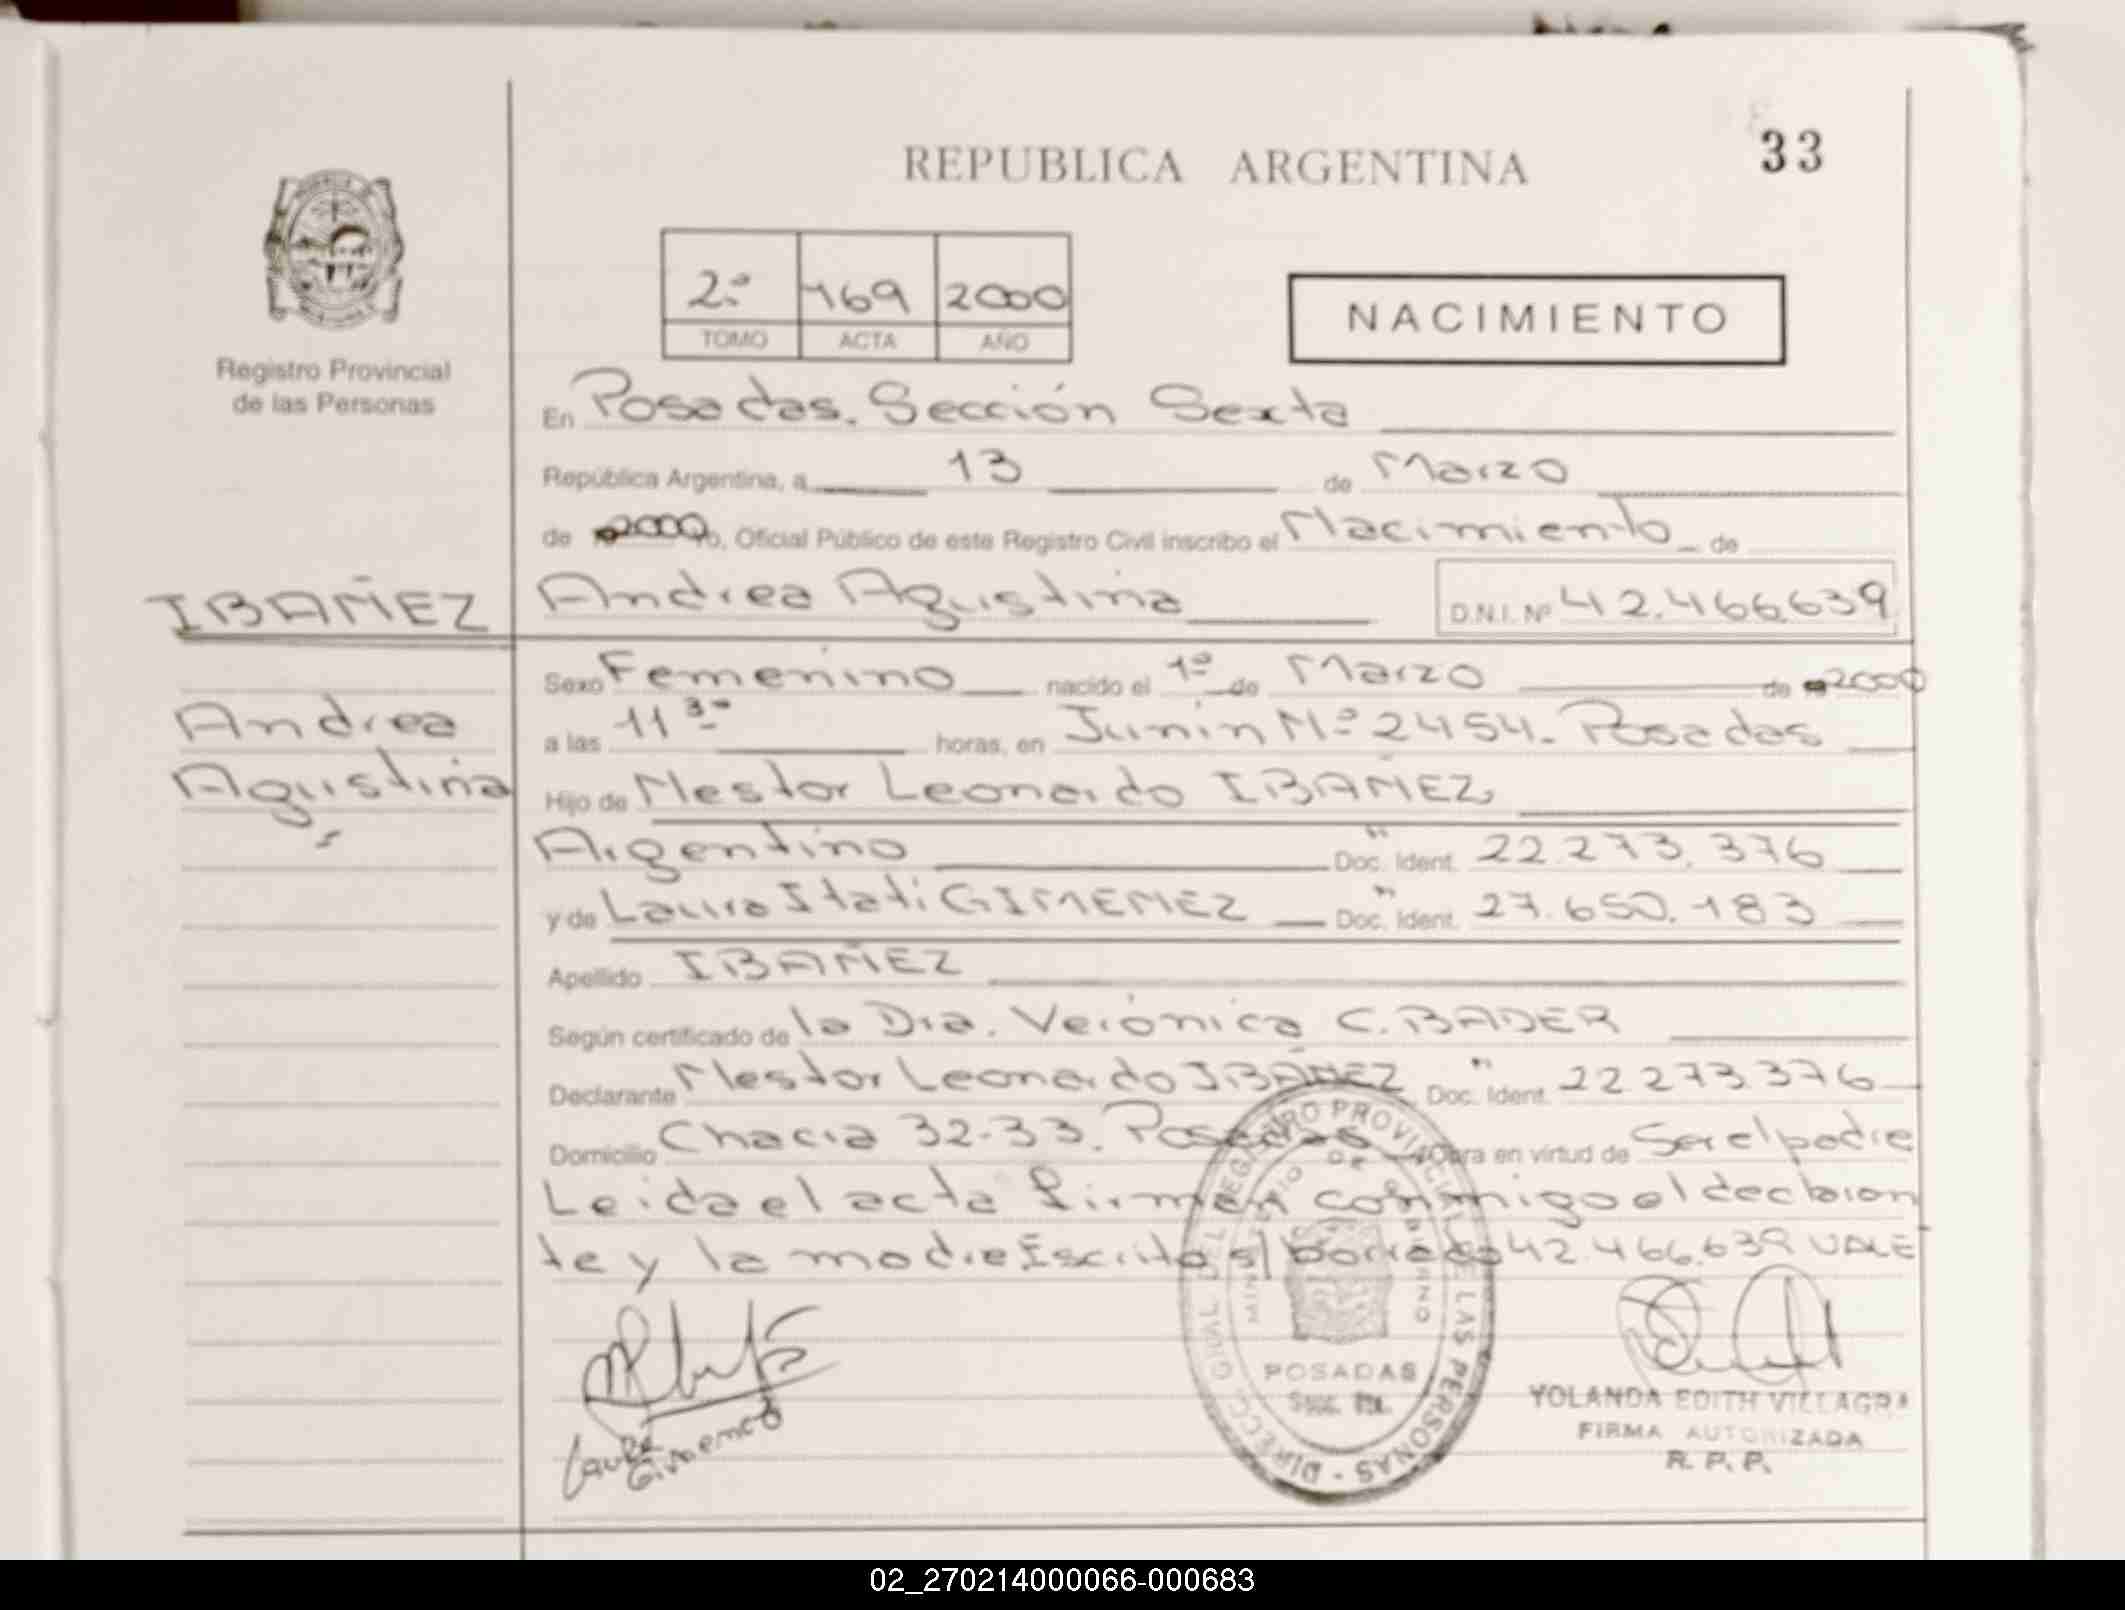 33
REPUBLICA ARGENTINA
2º 169 2000
TOMO ACTA AÑO
NACIMIENTO
Registro Provincial
de las Personas
En Posadas. Sección Sexta
República Argentina, a 13 de Marzo
de 2000 Yo, Oficial Público de este Registro Civil inscribo el Nacimiento de
IBAÑEZ Andrea Agustina D.N.I. Nº 42.466.639
Sexo Femenino nacido el 1º de Marzo de 2000
Andrea
a las 11 30 horas, en Junin Nº 2454. Posadas
Agustina
Hijo de Nestor Leonardo IBAÑEZ,
Argentino Doc. Ident. " 22.273.376
y de Laura Itati GIMENEZ Doc. Ident. " 27.650.183
Apellido IBAÑEZ
Según certificado de la Dra. Verónica C. BADER
Declarante Nestor Leonardo IBAÑEZ Doc. Ident. " 22273376
Domicilio Chacra 32-33. Posadas Obra en virtud de Ser el padre
Leida el acta firman conmigo el declaran
te y la madre Escrito s/ borrado 42.466.639 VALE
DIRECC. GRAL. DEL REGISTRO PROVINCIAL DE LAS PERSONAS
MINISTERIO DE GOBIERNO
POSADAS
Laura
Gimenez
YOLANDA EDITH VILLAGRA
FIRMA AUTORIZADA
R. P. P.
02_270214000066-000683